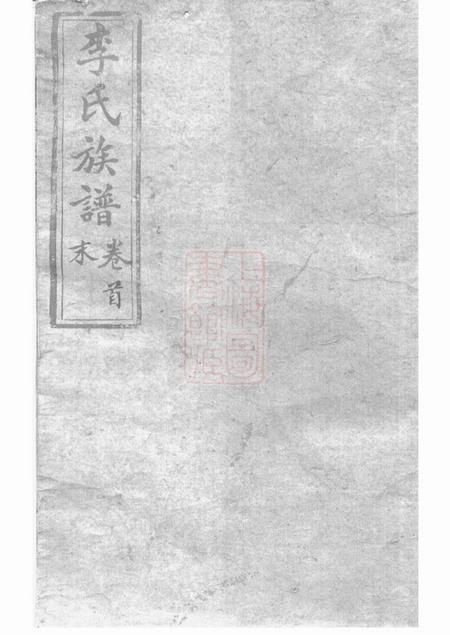 李氏族譜
卷首
末
上海圖
書館藏